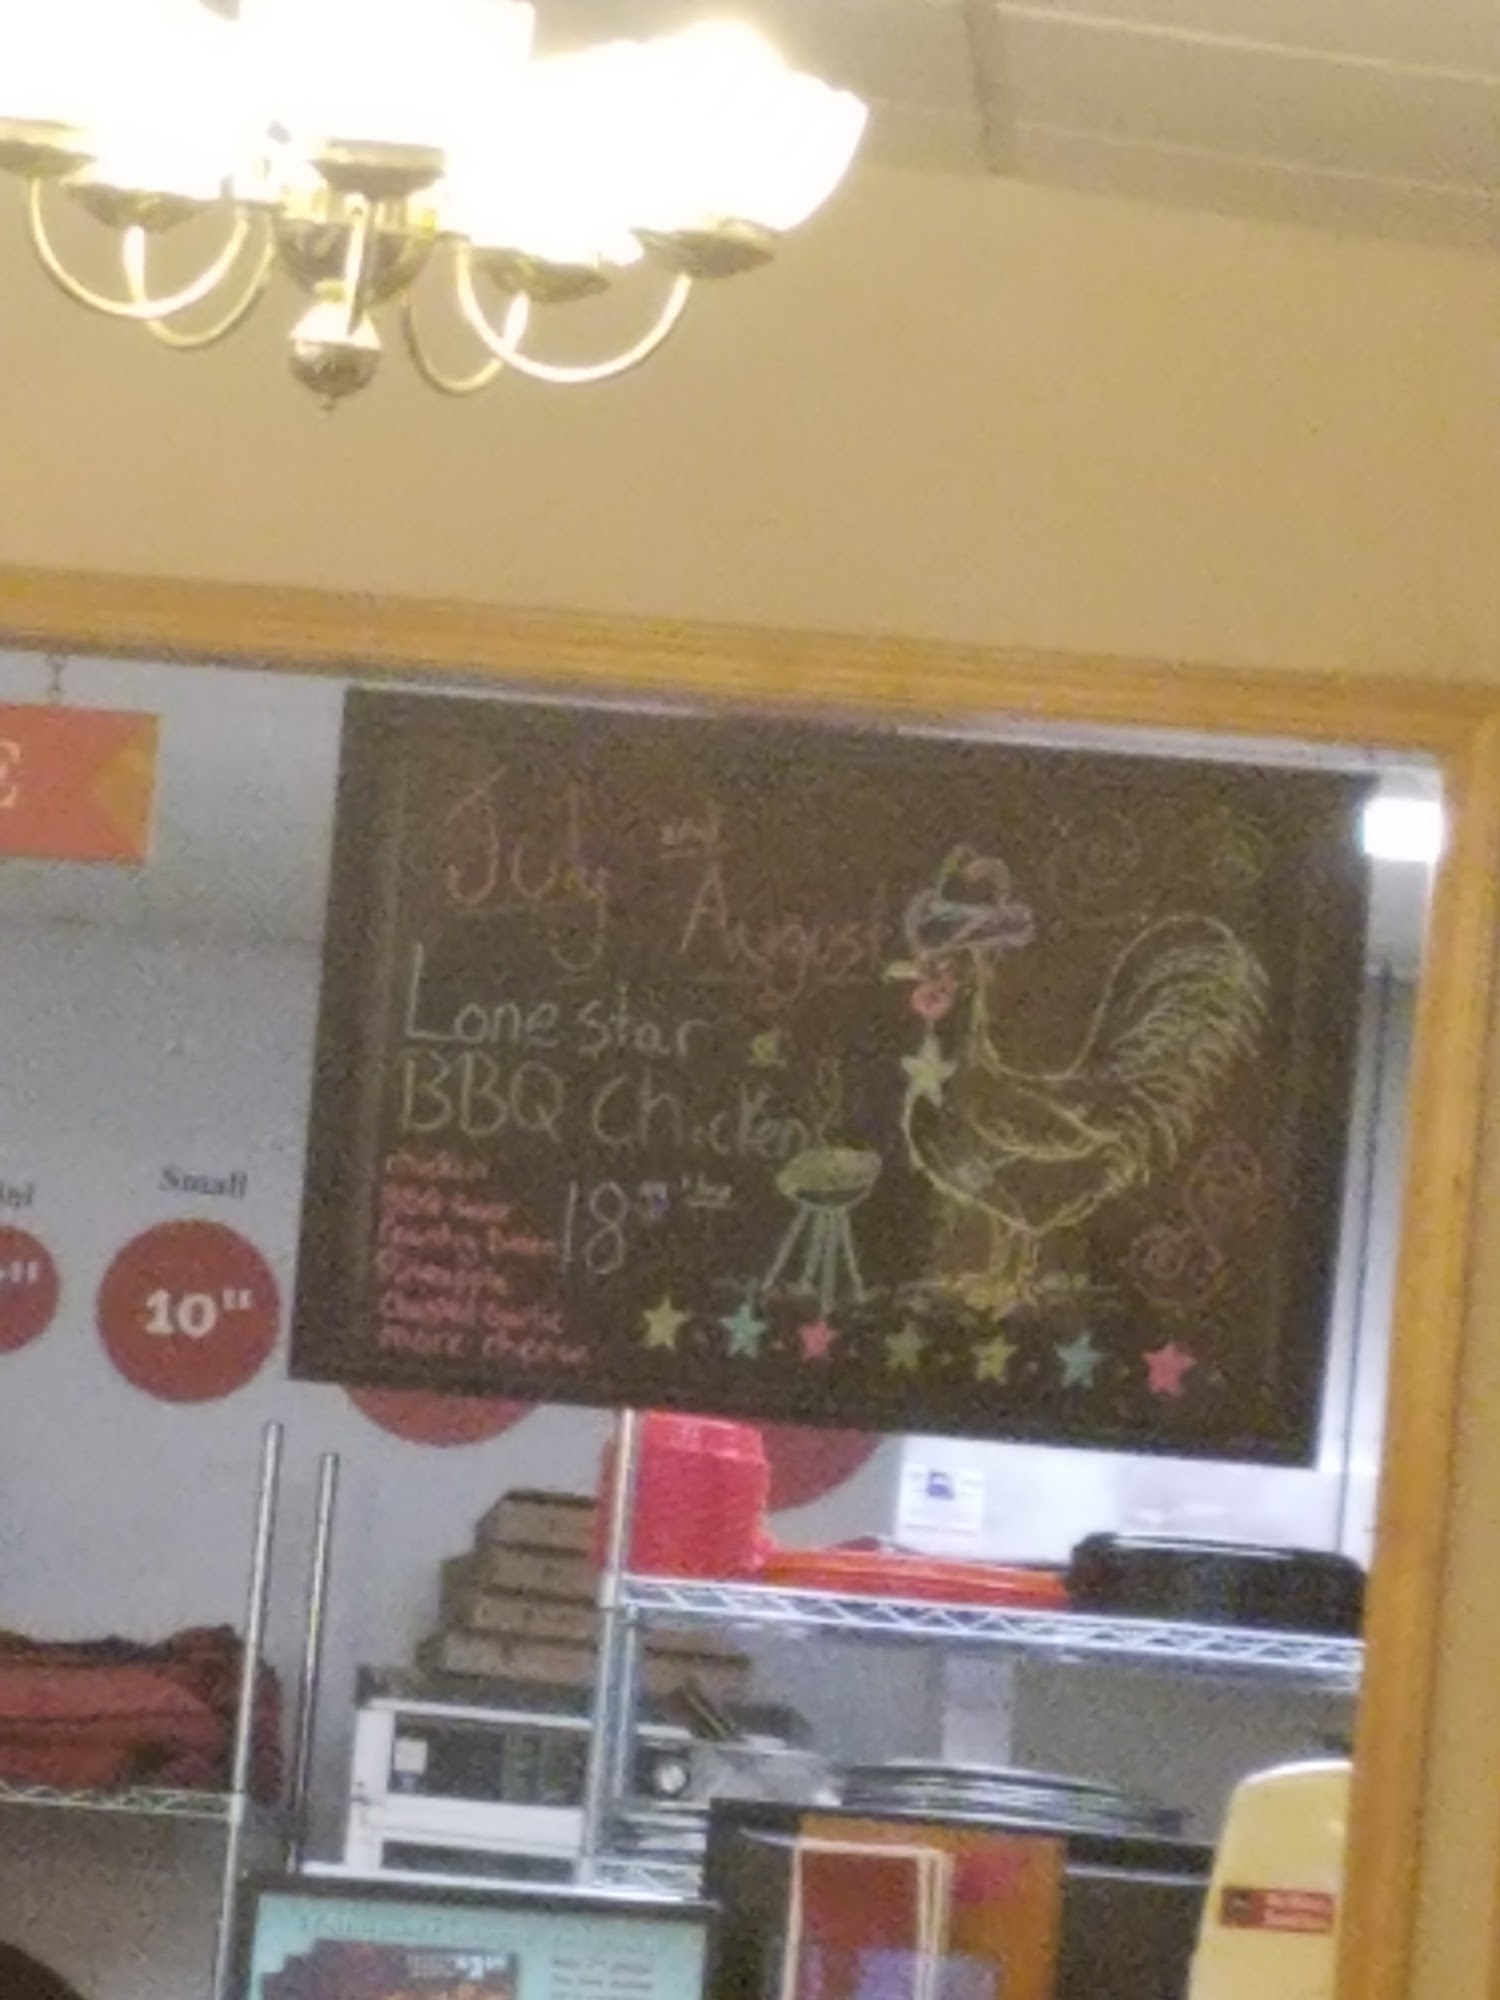 E
July and
August
Lone star
BBQ Chicken
18
chicken
BBQ Sauce
Country Bacon
Pineapple
Chopped Garlic
more cheese
Small
10"